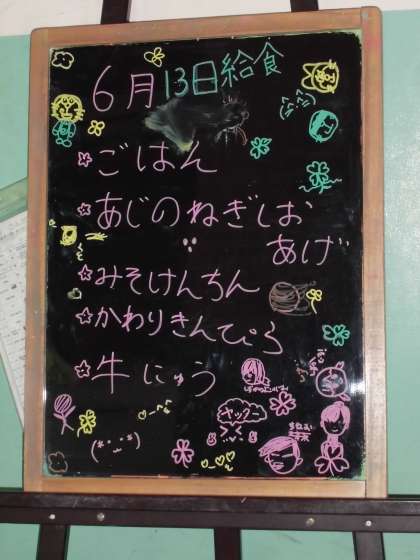 6月13日給食
☆ごはん
☆あじのねぎしお
あげ
☆みそけんちん
☆かわりきんぴら
☆牛にゅう